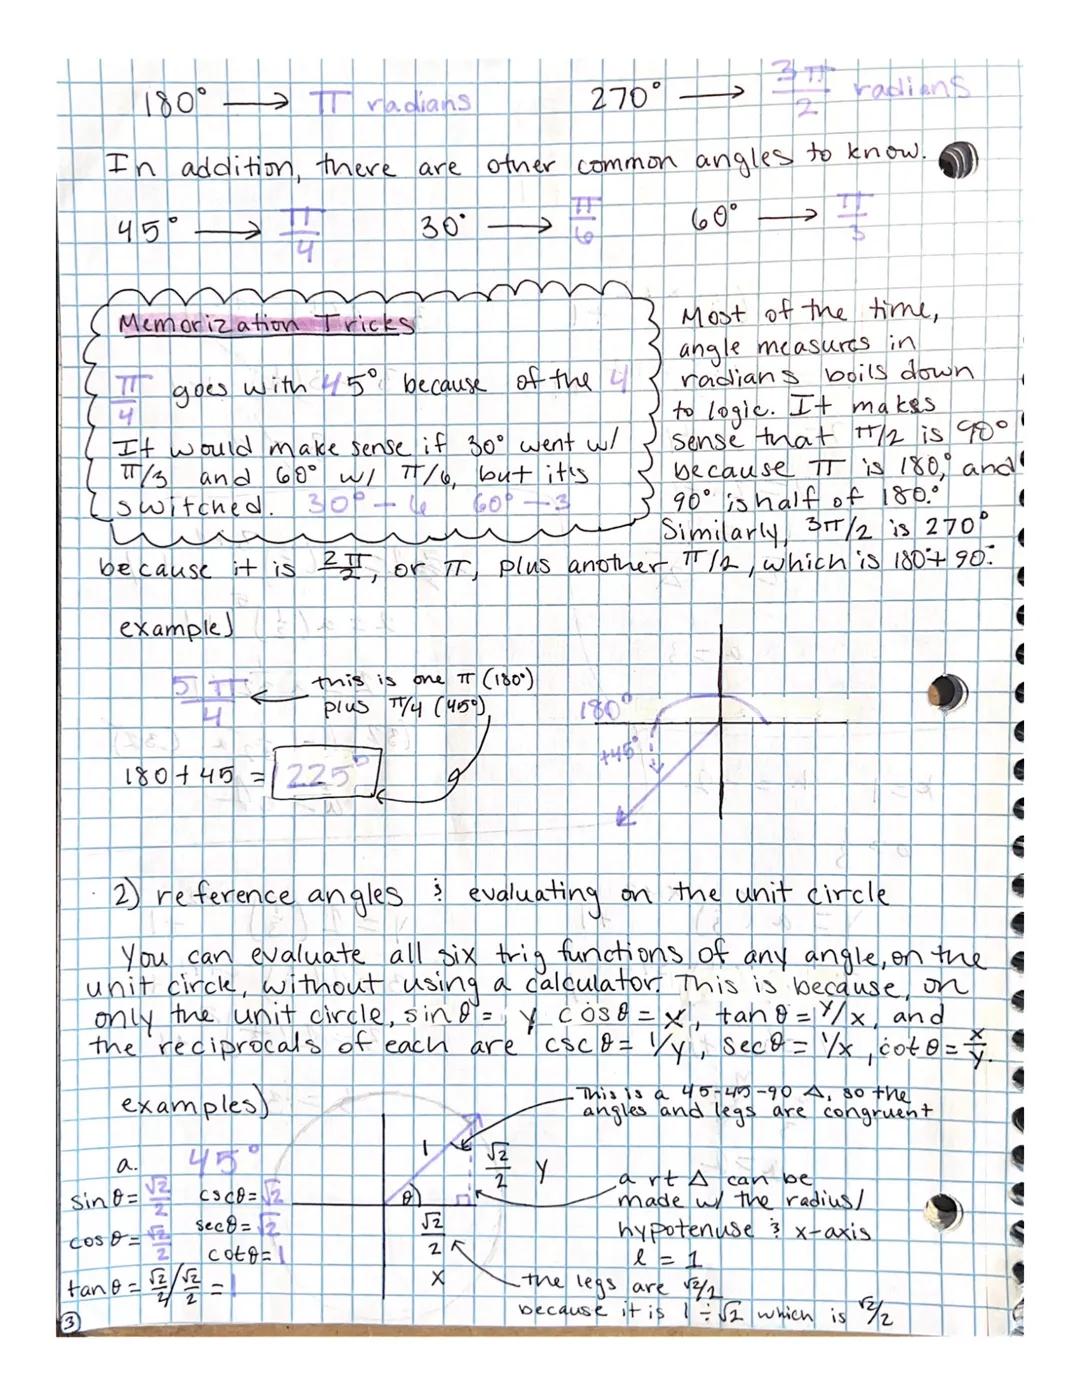 180° → π radians 270° → 3π/2 radians
In addition, there are other common angles to know.
45° → π/4 30° → π/6 60° → π/3
Memorization Tricks
π/4 goes with 45° because of the 4
It would make sense if 30° went w/
π/3 and 60° w/ π/6, but it's
switched. 30° – 6 60° – 3
Most of the time,
angle measures in
radians boils down
to logic. It makes
sense that π/2 is 90°
because π is 180°, and
90° is half of 180.°
Similarly, 3π/2 is 270°
because it is 2π/2, or π, plus another π/2, which is 180°+ 90.°
example)
5π/4 ← this is one π (180°)
plus π/4 (45°)
180 + 45 = 225°
180°
+45°
2) reference angles & evaluating on the unit circle
You can evaluate all six trig functions of any angle, on the
unit circle, without using a calculator. This is because, on
only the unit circle, sin θ = y, cos θ = x, tan θ = y/x, and
the reciprocals of each are csc θ = 1/y, sec θ = 1/x, cot θ = x/y.
examples)
This is a 45-45-90 △, so the
angles and legs are congruent
a. 45°
sin θ = √2/2 csc θ = √2
cos θ = √2/2 sec θ = √2
cot θ = 1
tan θ = √2/2 / √2/2 = 1
1
√2/2 y
θ
√2/2
x
a rt △ can be
made w/ the radius/
hypotenuse & x-axis
l = 1
the legs are √2/2
because it is 1 ÷ √2 which is √2/2
3